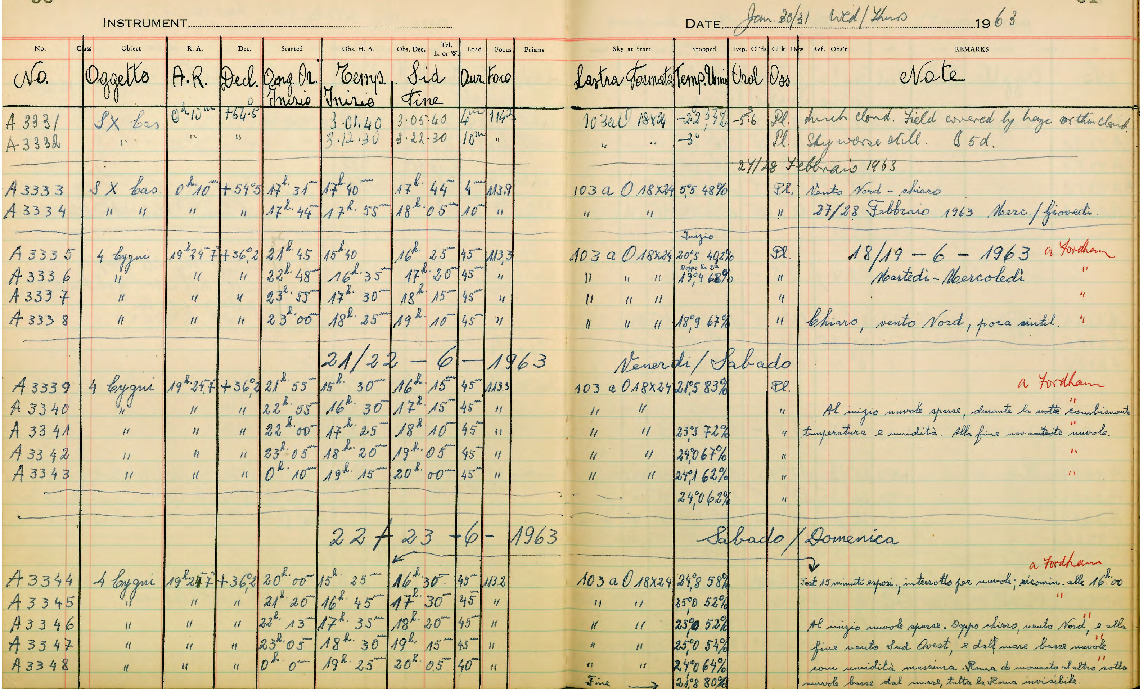 INSTRUMENT DATE Jan 30/31 Wed/Thurs 1963
No. Class Object R.A. Dec. Started Obs. H.A. Obs. Dec. Tel. E. or W. Focus Prisms Sky at Start Stopped REMARKS
No. Oggetto A.R. Decl. Ong. Or. Inizio Temp. Inizio Sid Fine Dur Foco Lastra Formato Temp. Umid Orol Oss Note
A 3331 SX Cas 0h 10m +54°.5 3.01.40 3.05.40 4m 114 103aO 18x24 -5.6 Pl. cloud. Field covered by haze or thin cloud.
A 3332 " " " 3.12.30 3.22.30 10m " " " -3° Pl. Sky worse still. 5d.
27/28 Febbraio 1963
A 3333 SX Cas. 0h 10m +54°5 17h. 31m 17h 40m 17h 44m 4m 113.9 103 a O 18x24 5°5 48% Pl. Vento Nord - chiaro
A 3334 " " " " 17h. 44m 17h. 55m 18h 05m 10m " " " " 27/28 Febbraio 1963 Merc/Giovedì.
Inizio
A 3335 4 Cygni 19h 24m.7 +36°,2 21h 45 15h 40 16h 25 45m 113.3 103 a O 18x24 20°,5 40,2% Pl. 18/19 - 6 - 1963 a Fordham
A 3336 " " " 22h. 48m 16h. 35m 17h. 20m 45m " " " " 19°,4 68% " Martedì-Mercoledì "
A 3337 " " " 23h. 55m 17h. 30m 18h 15m 45m " " " " " "
A 3338 " " " 23h 00m 18h. 25m 19h. 10m 45m " " " " 18°,9 67% " Chiaro, vento Nord, poca sintil. "
21/22 - 6 - 1963 Venerdi/Sabado
A 3339 4 Cygni 19h.24m.7 +36°,2 21h 55m 15h. 30m 16h 15m 45m 113.3 103 a O 18x24 21°,5 83% Pl a Fordham
A 3340 " " " 22h 55m 16h. 30m 17h 15m 45m " " " " Al inizio nuvole sparse, durante la notte cambiamento "
A 3341 " " " 22h 00m 17h 25m 18h 10m 45m " " " 23°,3 72% " temperatura e umidità. Alla fine nuvole. "
A 3342 " " " 23h 05m 18h. 20m 19h. 05m 45m " " " 24°,0 67% " "
A 3343 " " " 0h 10m 19h. 15m 20h 00m 45m " " " 24°,1 62% " "
24°,0 62% "
22/23 - 6 - 1963 Sabado/Domenica
a Fordham
A 3344 4 Cygni 19h 24m.7 +36°,2 20h 00m 15h. 25m 16h 30m 45m 113.2 103 a O 18x24 24°,8 58% 15 minuti esposi., interrotto per nuvole; ricomin. alle 16h00
A 3345 " " " 21h 20m 16h. 45m 17h 30m 45m " " " 25°,0 52% " "
A 3346 " " " 22h 13m 17h. 35m 18h. 20m 45m " " " 25°,0 52% " Al inizio nuvole sparse. Doppo chiaro, vento Nord, e alla "
A 3347 " " " 23h 05m 18h. 30m 19h. 15m 45m " " " 25°,0 54% " fine vento Sud Ovest, e dal mare basse nuvole "
A 3348 " " " 0h 0m 19h 25m 20h 05m 40m " " " 24°,0 64% " con umidità massima. Roma da momento al altro sotto "
Fine → 23°,8 80% nuvole basse dal mare, tutta la Roma invisibile.